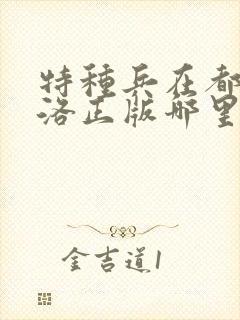 特種兵在都
洛正版哪里
金吉道1